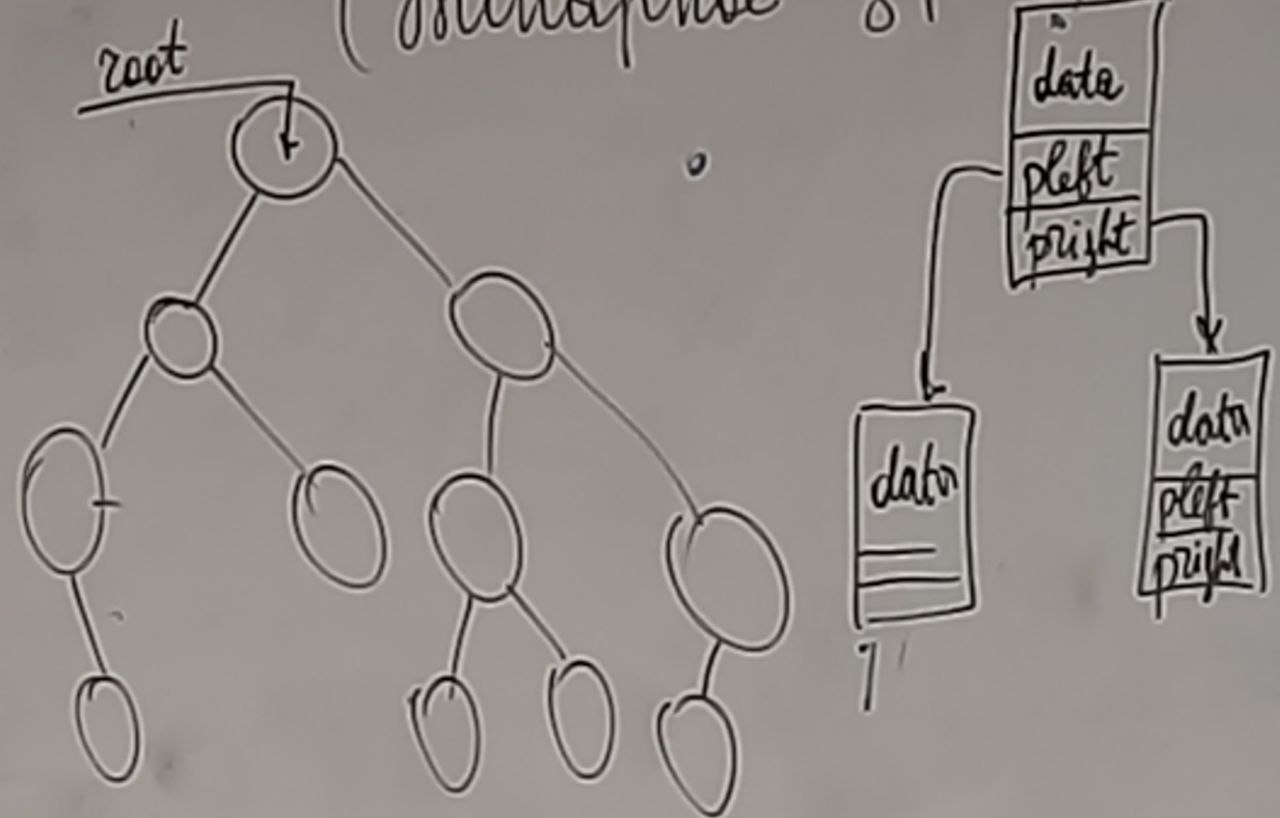 root
data
pleft
pright
data
data
pleft
pright